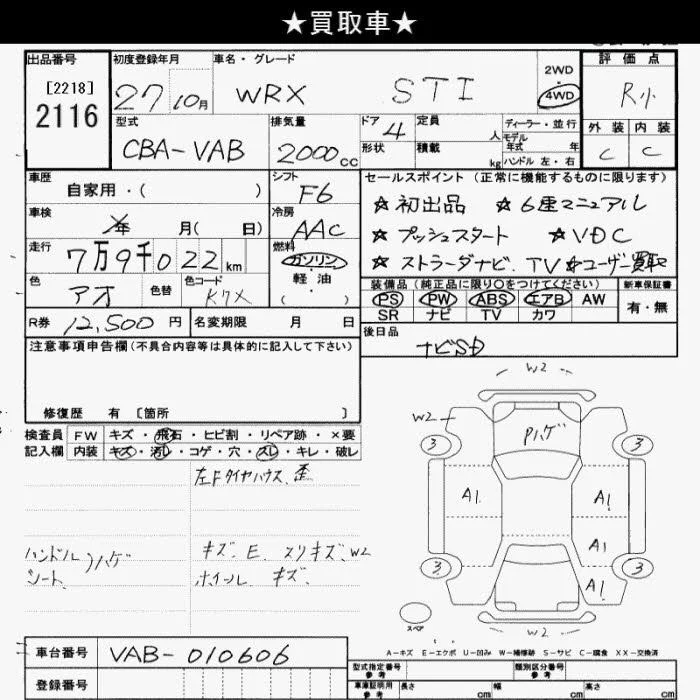 ★買取車★
出品番号
[2218]
2116
初度登録年月
27 10月
車名・グレード
WRX STI
2WD
4WD
評価点
R小
型式
CBA-VAB
排気量
2000cc
ドア
4
形状
定員 人
積載 kg
ディーラー・並行
モデル年式 年
ハンドル 左・右
外装 内装
C C
車歴
自家用・( )
シフト
F6
セールスポイント(正常に機能するものに限ります)
☆初出品 ☆6速マニュアル
☆プッシュスタート ☆VDC
☆ストラーダナビ.TV ☆ユーザー買取
車検
年 月( 日)
冷房
AAC
走行
7万9千022km
燃料
ガソリン・軽油
色
アオ
色替
色コード
K7X
装備品(純正品に限り○をつけてください)
PS PW ABS エアB AW
SR ナビ TV カワ
新車保証書
有・無
R券 12,500円
名変期限 月 日
後日品
ナビSD
注意事項申告欄(不具合内容等は具体的に記入して下さい)
修復歴 有 [箇所 ]
検査員記入欄
FW キズ・飛石・ヒビ割・リペア跡・×要
内装 キズ・汚レ・コゲ・穴・スレ・キレ・破レ
左Fタイヤハウス、歪
ハンドル
シート
ハゲ
キズ.E.スリキズ.W2
ホイール キズ.
W2
W2
Pハゲ
3 3
A1 A1
A1
3 3
A1
スペア
W2
A-キズ E-エクボ U-凹み W-補修跡 S-サビ C-腐食 XX-交換済
車台番号
VAB-010606
登録番号
型式指定番号 参考
類別区分番号 参考
車庫証明用 参考
長さ cm 幅 cm 高さ cm